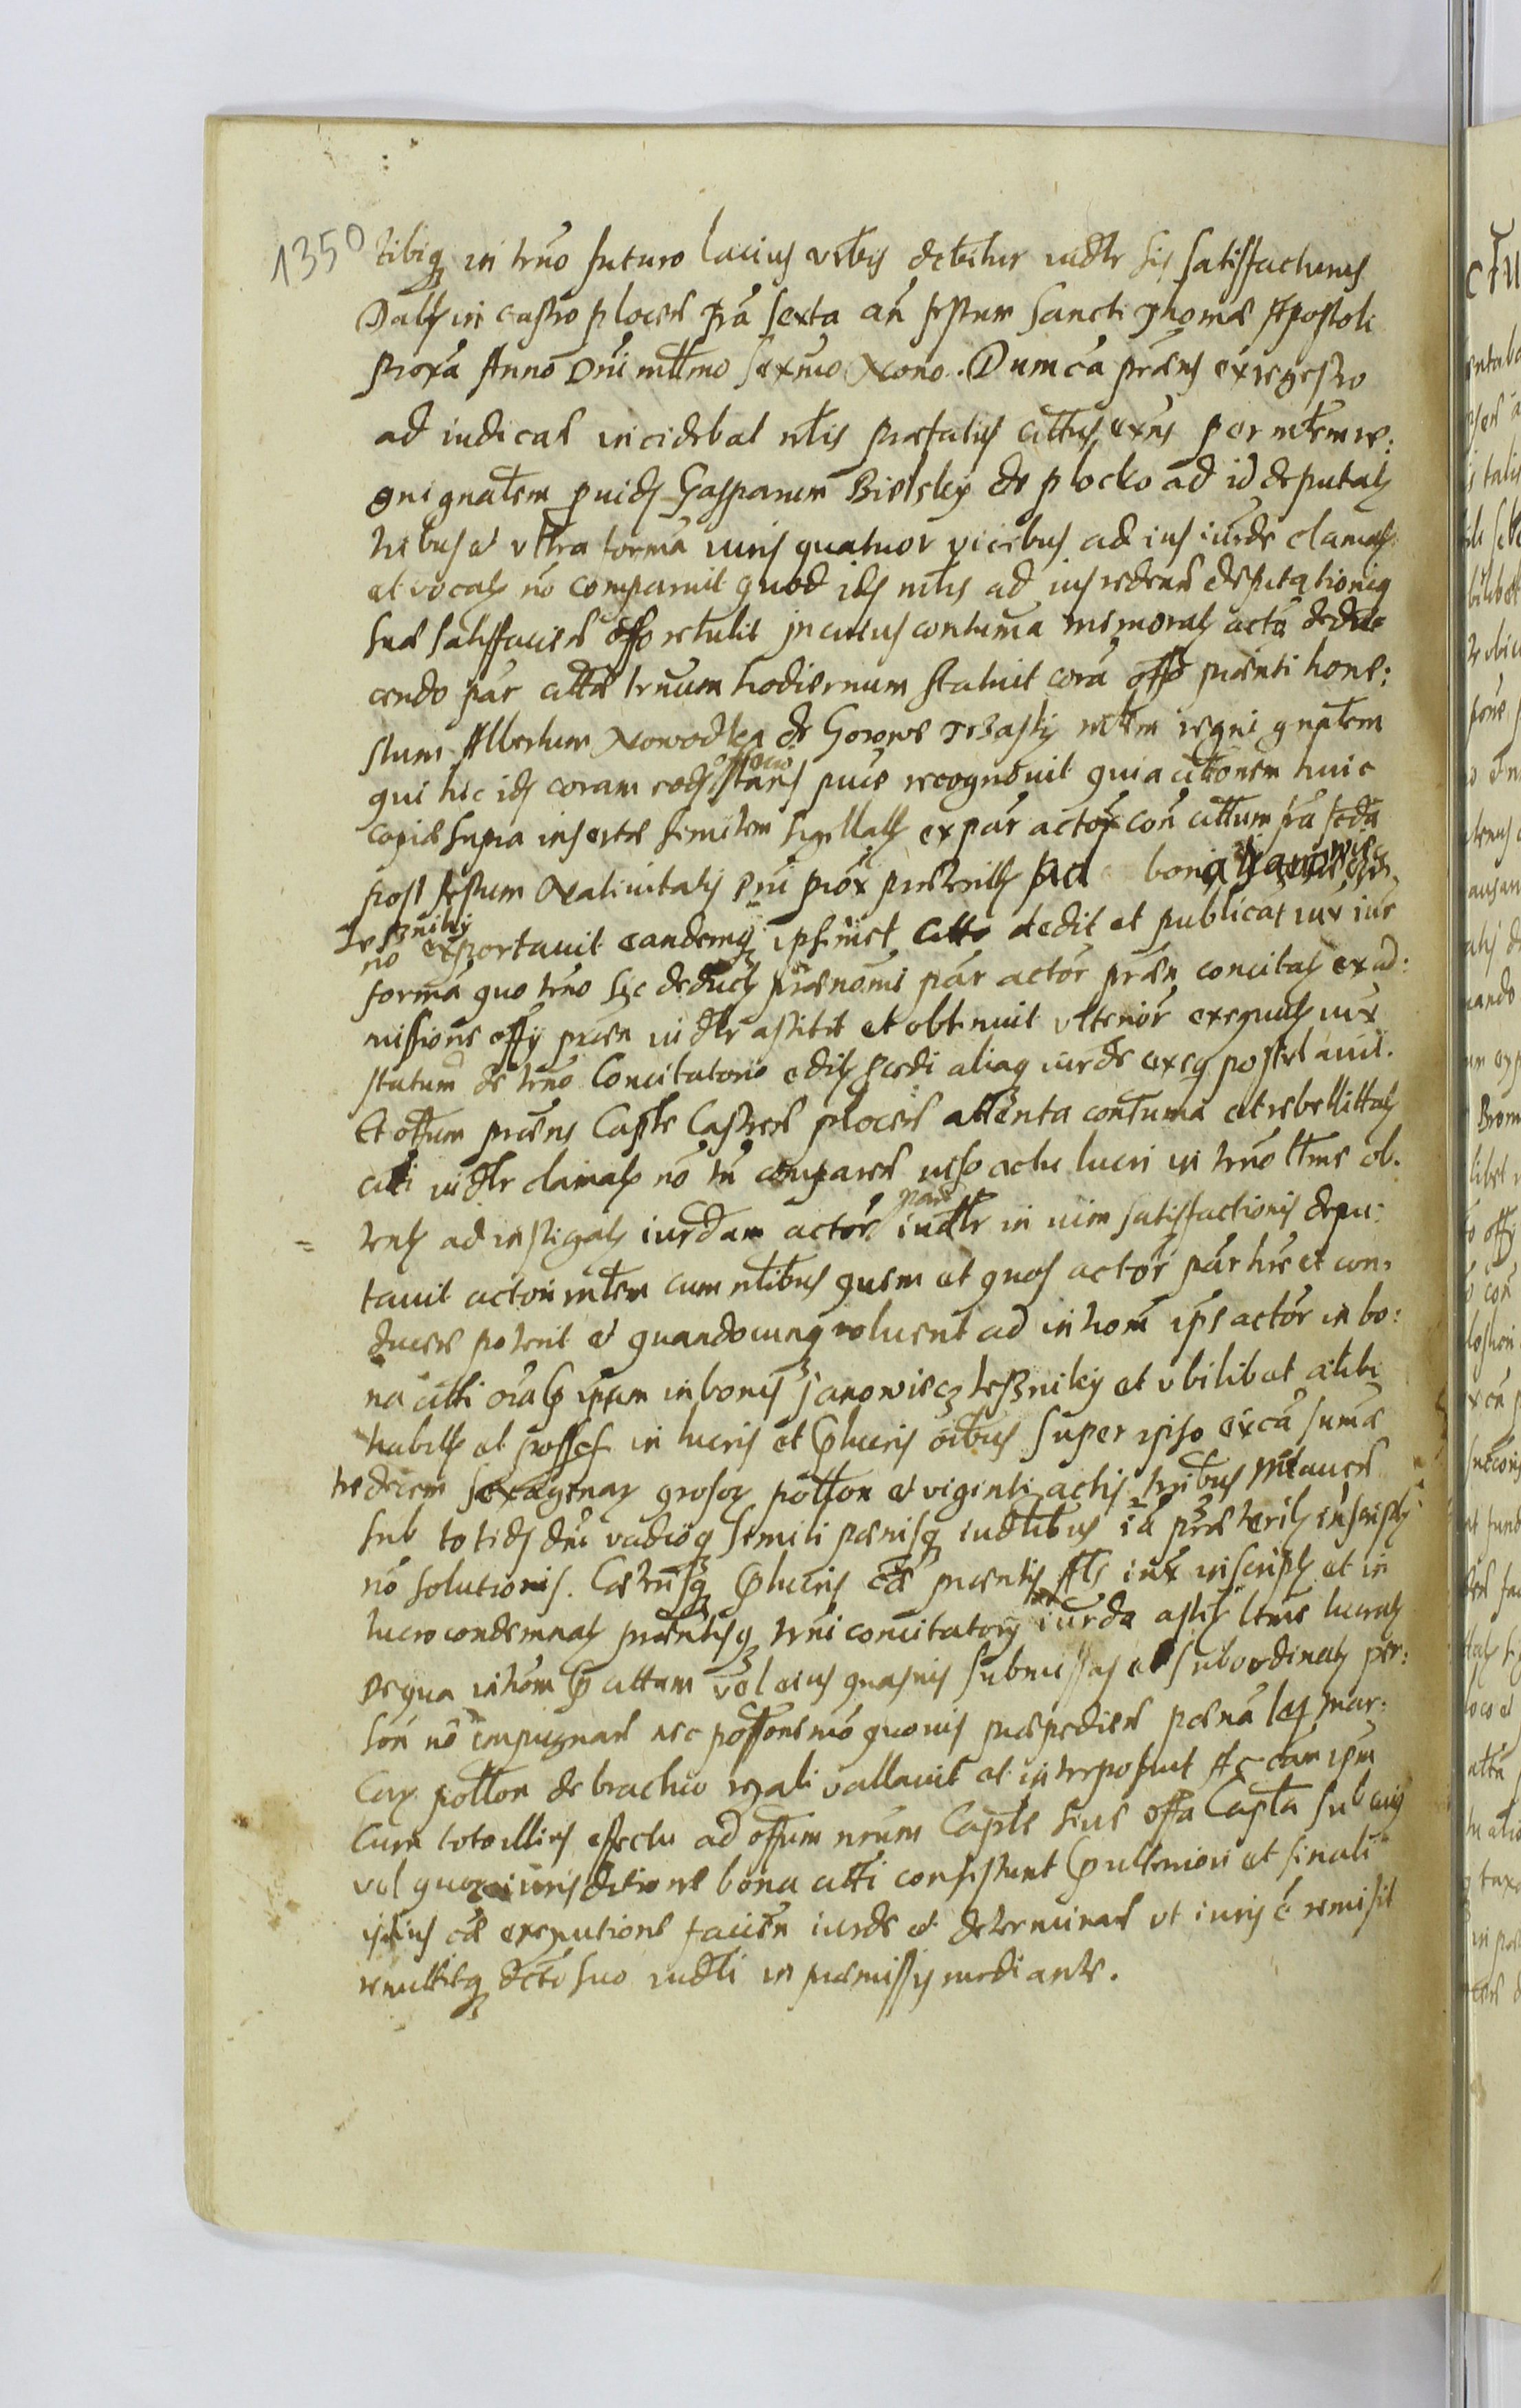 1350
tibiq in trno futuro lacius verbis debitur iudlr sis satisfacturus
Datȝ in castro plocen fra sexta an festum sancti Thomæ Apostoli
proxa Anno Dni mllmo sexmo Nono. Dum ca præns ex regestro
ad iudican incidebat nlis præfatus cittus exns per mtem re:
gni gnalem puidȝ Gasparum Bielsky de plocko ad id deputatȝ
tribus et vltra forma iuris quatuor vicibus ad ius iurde clamatȝ
et vocatȝ no comparuit quod idȝ mtis ad ius reden deputationiq
suæ satisfacien offo retulit in cuius contuma memoratȝ acta dedu
cendo par citta trnum hodiernum statuit cora offo prænti hone:
stum Albertum Nowodka de Gorowe Trzasky mtem regni gnalem
qui hic idȝ coram eodȝ officio stans puce recognouit quia cittonem huic
copiæ supra insertæ similem sigillatȝ ex par actor con cittum fra scda
post festum Natiuitatis Dni prox præteritȝ ad bona Janowiecz
Leszniky
no exportauit eandemq ipsimet citto dedit et publicat iux iur
forma quo trno sic deductȝ prænomi par actor præn concitatȝ ex ad:
missione offy præn iudlr astitit et obtinuit vlterior exequutȝ iux
statum de trno Concitatorio editȝ procedi aliaq iurde exeq postulauit.
Et offum præns Capte Castren plocen attenta contuma et rebellittatȝ
citti iudlr clamatȝ no tn comparen ipso actu lucri in trno ltme ob:
tentȝ ad instigatȝ iurdam actor par iudlr in vim satisfactionis depu:
tauit actori mtem cum nlibus quem et quos actor par hre et con:
ducere poterit et quandocunq voluerit ad introm ipse actor in bo:
na citti oia ipsum in bonis Janowiecz Leszniky et vbilibet alibi
habitȝ et possess in lucris et lucris oibus super ipso ex ca sumæ
tredecim sexagenar grosor potton et viginti actis tribus
sub totidȝ dni vadioq simili pænisq iudlibus ia præteritȝ inscriptȝ
no solutionis. Cæterisq lucris ca præntis fti iux inscriptȝ et in
lucro condemnatȝ præntisq trni concitatory iurda astitȝ ltme lucratȝ
De qua introm cittum vel eius quasuis submissas et subordinatȝ per:
son no impugnan nec possone mo quouis præpedien pæna mar:
car potton de brachio regali vallauit et interposuit Ac cam ipsm
cum toto illius effectu ad offum nrum Capte siue offa Capta sub cuius
vel quor iurisditione bona citti consistunt vlteriori et finali
istius cæ exequutione facien iurde et determinan vt iuris e remisit
remittitq dcto suo iudli in præmissis mediante.